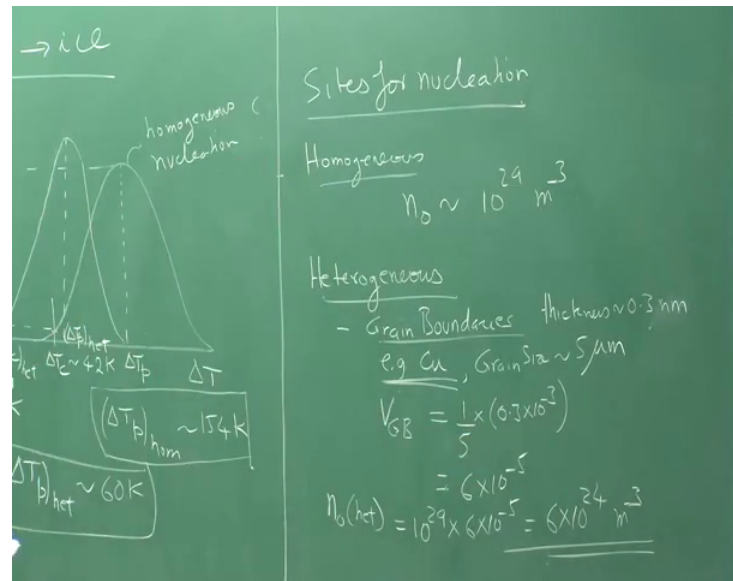 → ice
homogeneous
nucleation
(ΔTp)het
ΔTc ~ 42K ΔTp ΔT
(ΔTp)hom ~ 154K
ΔTp)het ~ 60K
Sites for nucleation
Homogeneous
n₀ ~ 10²⁹ m⁻³
Heterogeneous
- Grain Boundaries thickness ~ 0.3 nm
e.g Cu, Grain Size ~ 5 μm
V_GB = 1/5 × (0.3×10⁻³)
= 6×10⁻⁵
n₀(het) = 10²⁹ × 6×10⁻⁵ = 6×10²⁴ m⁻³